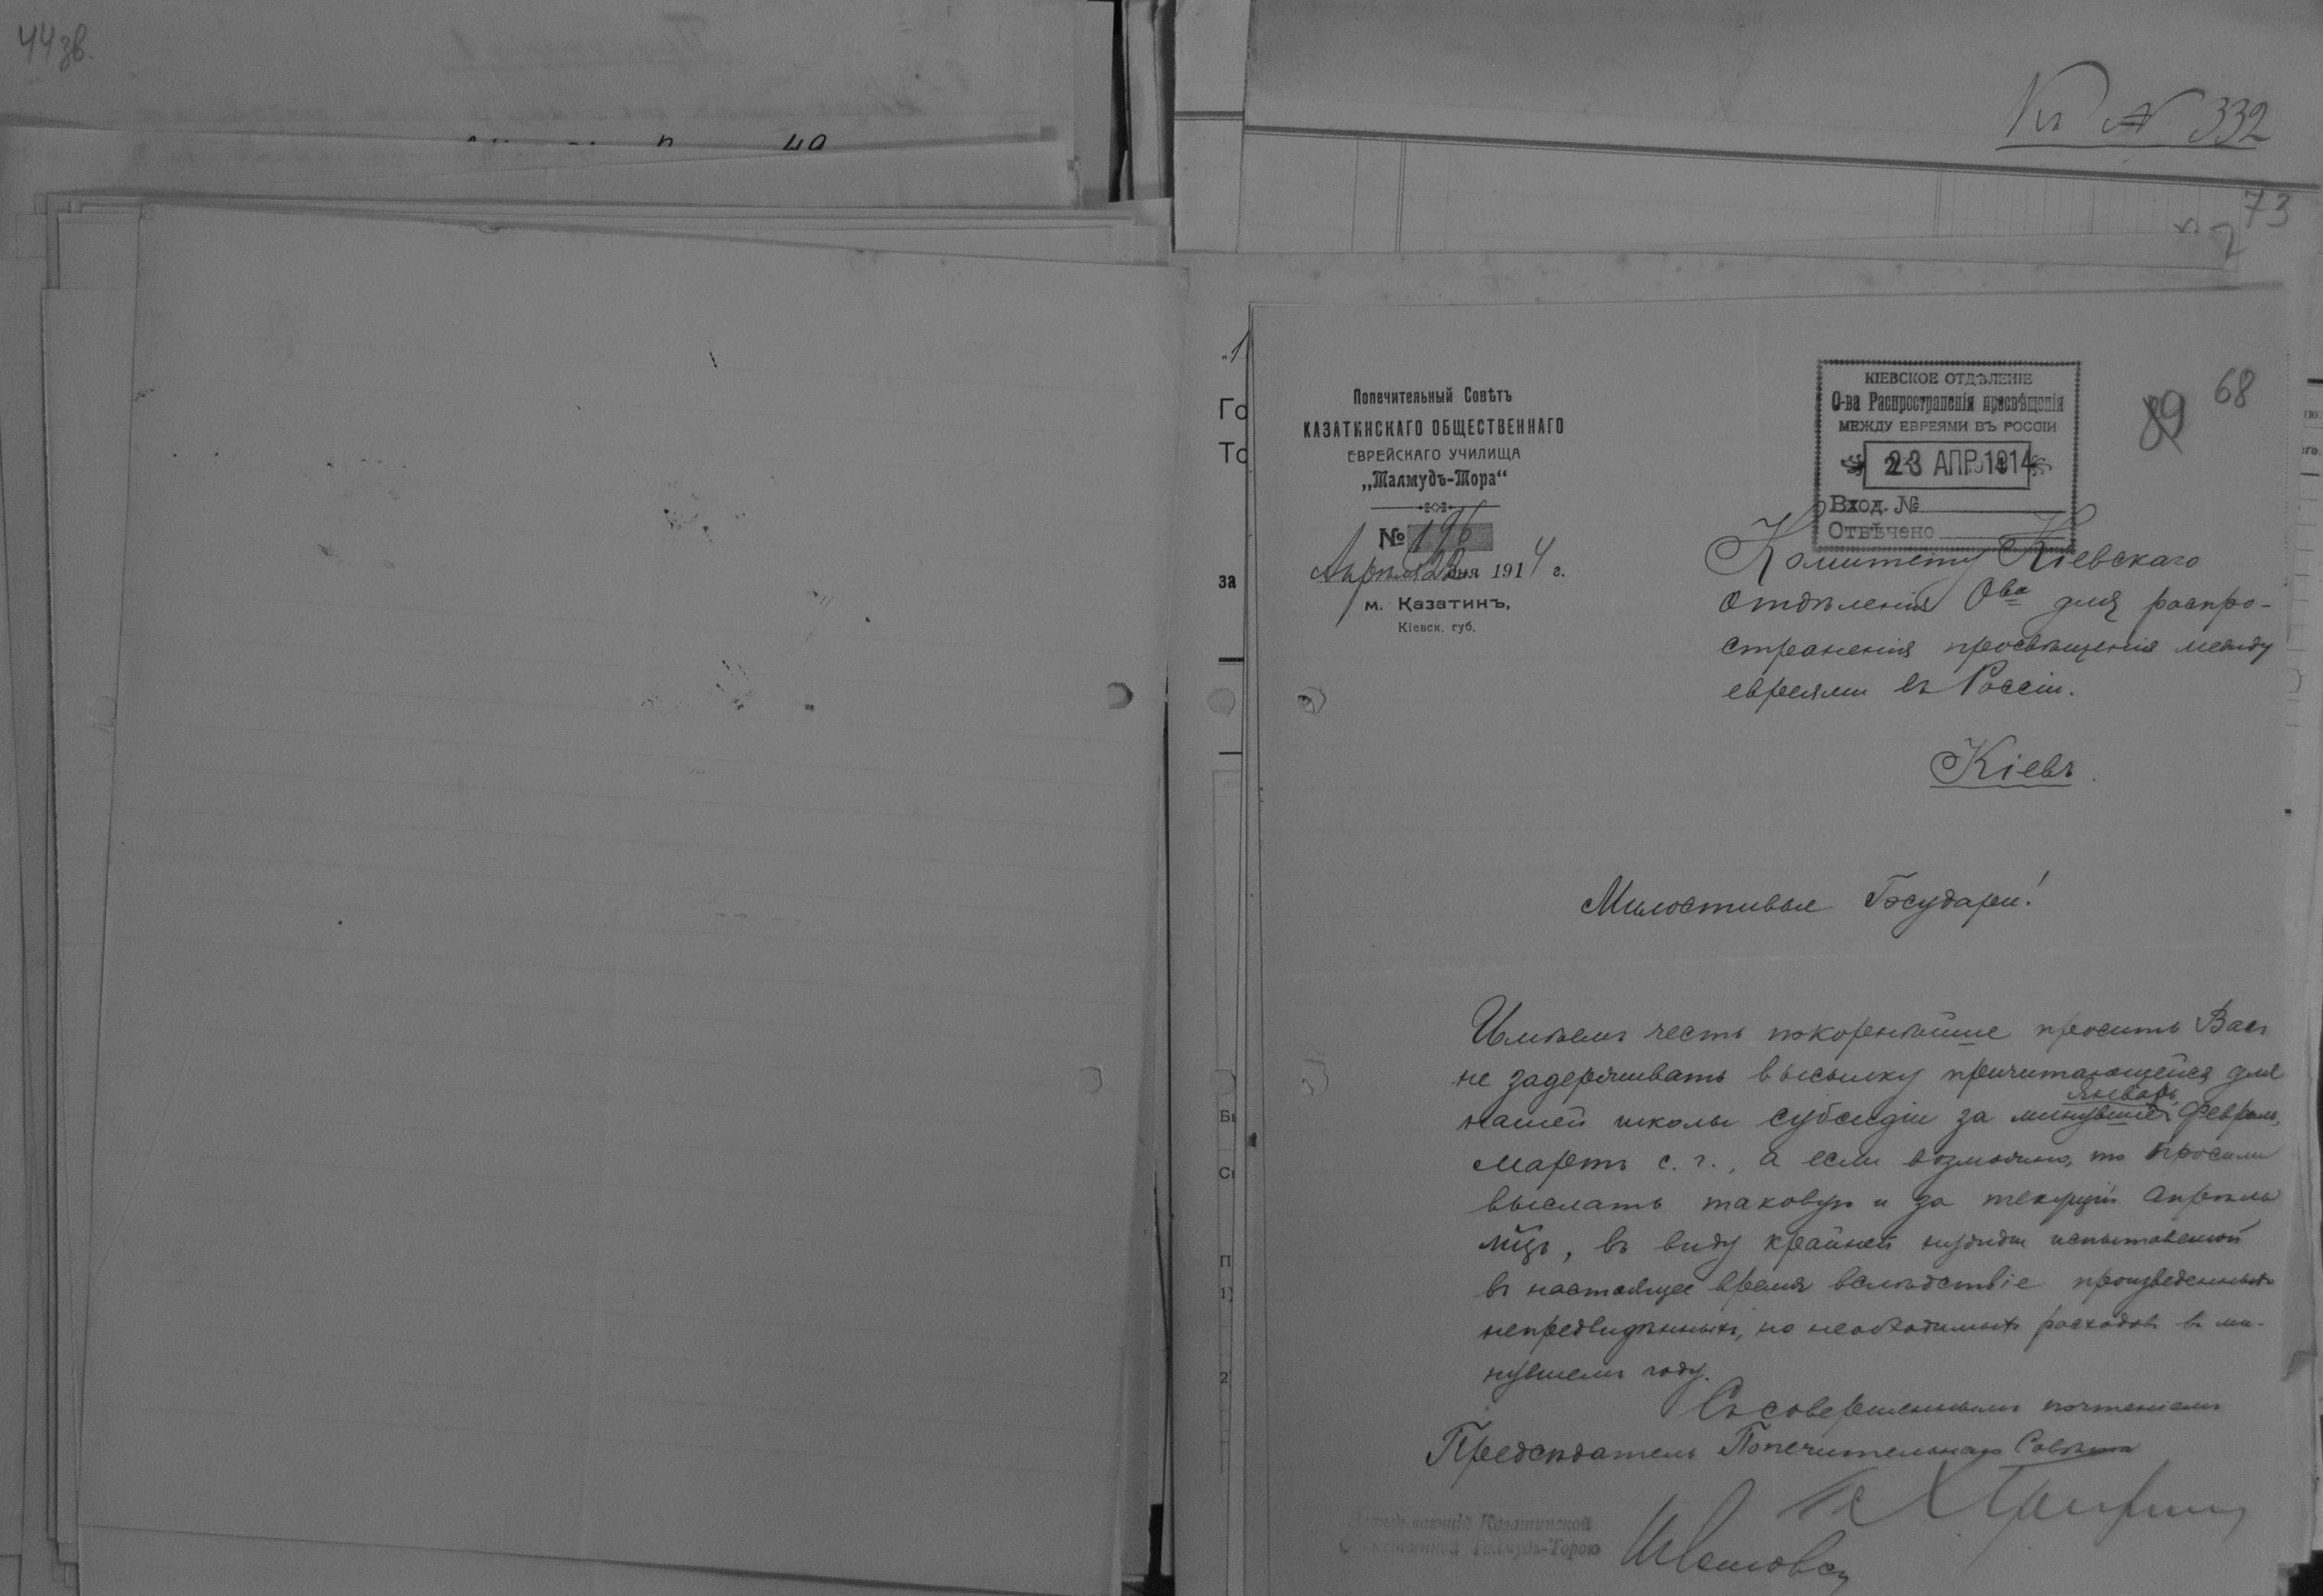 44зв.
Къ № 332
73
2
68
89
Попечительный Совѣтъ
КАЗАТИНСКАГО ОБЩЕСТВЕННАГО
ЕВРЕЙСКАГО УЧИЛИЩА
„Талмудъ-Тора“
№ 196
Апрѣля 22 дня 1914 г.
м. Казатинъ,
Кіевск. губ.
КІЕВСКОЕ ОТДѢЛЕНІЕ
О-ва Распространенія просвѣщенія
МЕЖДУ ЕВРЕЯМИ ВЪ РОССІИ
23 АПР. 1914
Вход. №
Отвѣчено
Комитету Кіевскаго
Отдѣленія Ова для распро-
страненія просвѣщенія между
евреями въ Россіи.
Кіевъ.
Милостивые Государи!
Имѣемъ честь покорнѣйше просить Васъ
не задерживать высылку причитающейся для
январь,
нашей школы субсидіи за минувшіе февраль,
мартъ с. г., а если возможно, то просили
выслать таковую и за текущій апрѣль
мцъ, въ виду крайней нужды испытываемой
въ настоящее время вслѣдствіе произведенныхъ
непредвидѣнныхъ, но необходимыхъ расходовъ въ ми-
нувшемъ году.
Съ совершеннымъ почтеніемъ
Предсѣдатель Попечительнаго Совѣта
Завѣдывающій Казатинской
Талмудъ-Торою